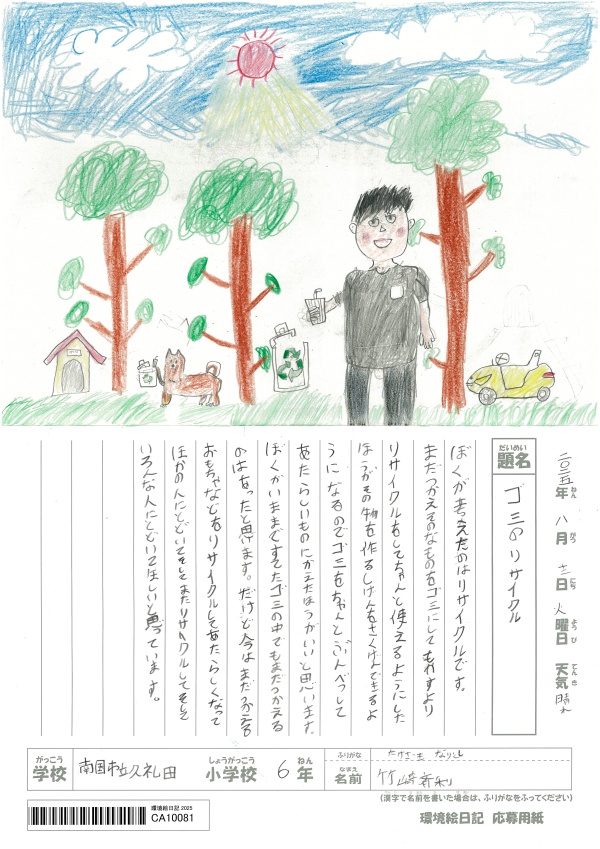 二〇二五年 八月 十二日 火曜日 天気 晴れ
ねん がつ にち ようび てんき
だいめい
題名 ゴミのリサイクル
ぼくが考えたのはリサイクルです。
まだつかえそうなものをゴミにしてもやすより
リサイクルをしてちゃんと使えるようにした
ほうがその物を作るしげんもさくげんできるよ
うになるのでゴミをちゃんとぶんべつして
あたらしいものにかえたほうがいいと思います。
ぼくがいままですてたゴミの中でもまだつかえる
のはあったと思います。だけど今はまだつかえる
おもちゃなどをリサイクルしてあたらしくなって
ほかの人にとどいてそこでまたリサイクルしてそして
いろんな人にとどいてほしいと思っています。
がっこう しょうがっこう ねん
学校 南国市立久礼田 小学校 6年
ふりがな たけさき なりとし
なまえ
名前 竹崎
(漢字で名前を書いた場合は、ふりがなをふってください)
環境絵日記 2025
CA10081
環境絵日記 応募用紙